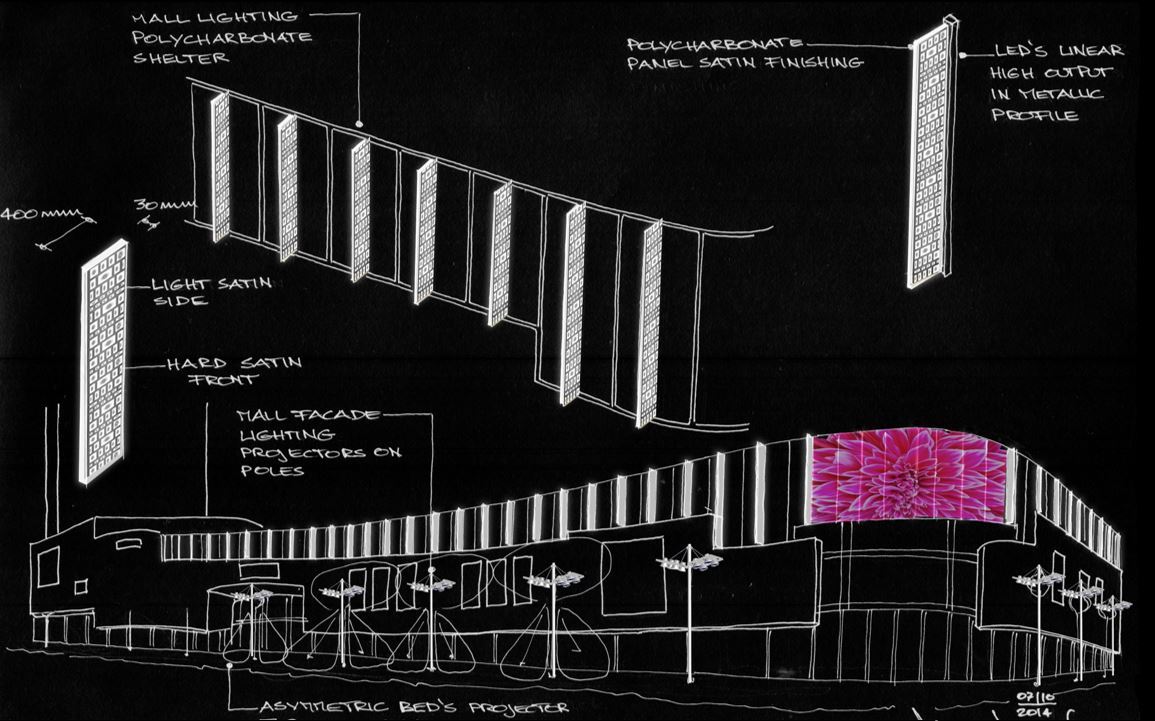 MALL LIGHTING
POLYCARBONATE
SHELTER
POLYCARBONATE
PANEL SATIN FINISHING
LED'S LINEAR
HIGH OUTPUT
IN METALLIC
PROFILE
400mm
30mm
LIGHT SATIN
SIDE
HARD SATIN
FRONT
MALL FACADE
LIGHTING
PROJECTORS ON
POLES
ASYMMETRIC BED'S PROJECTOR
07/10
2014